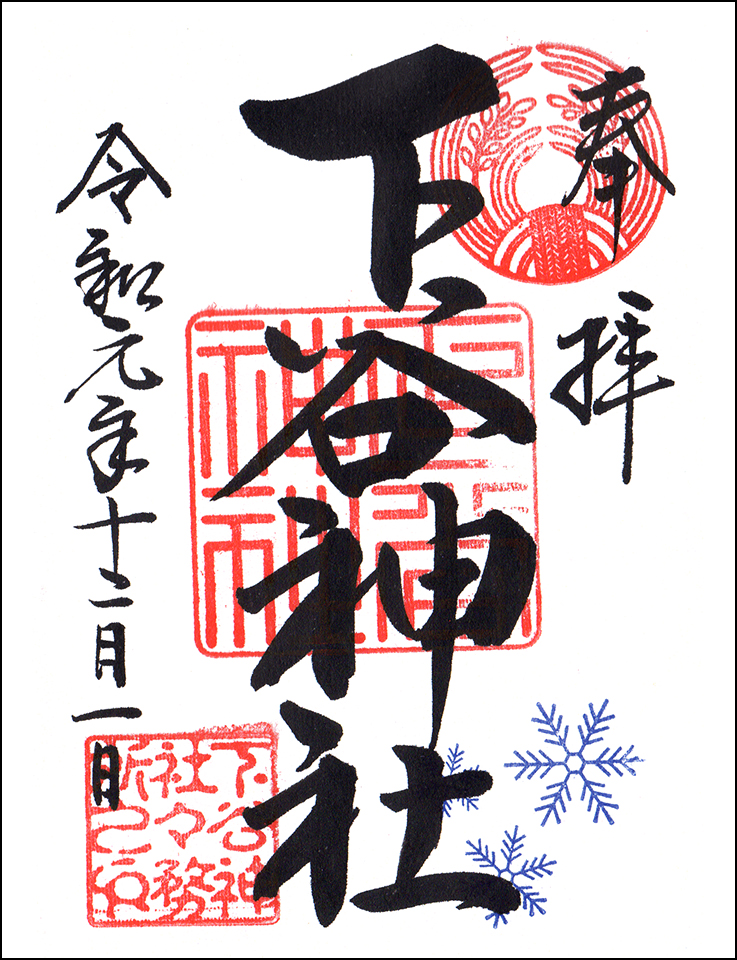 奉拝
下谷神社
下谷神社
下谷神
社々務
所之印
令和元年十二月一日